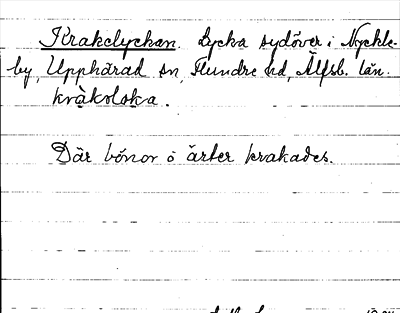 Krakelyckan. Lycka sydöver i Nyckle-
by, Upphärad sn, Flundre hd, Älfsb. län.
kràkolska.
Där bönor o ärter krakades.